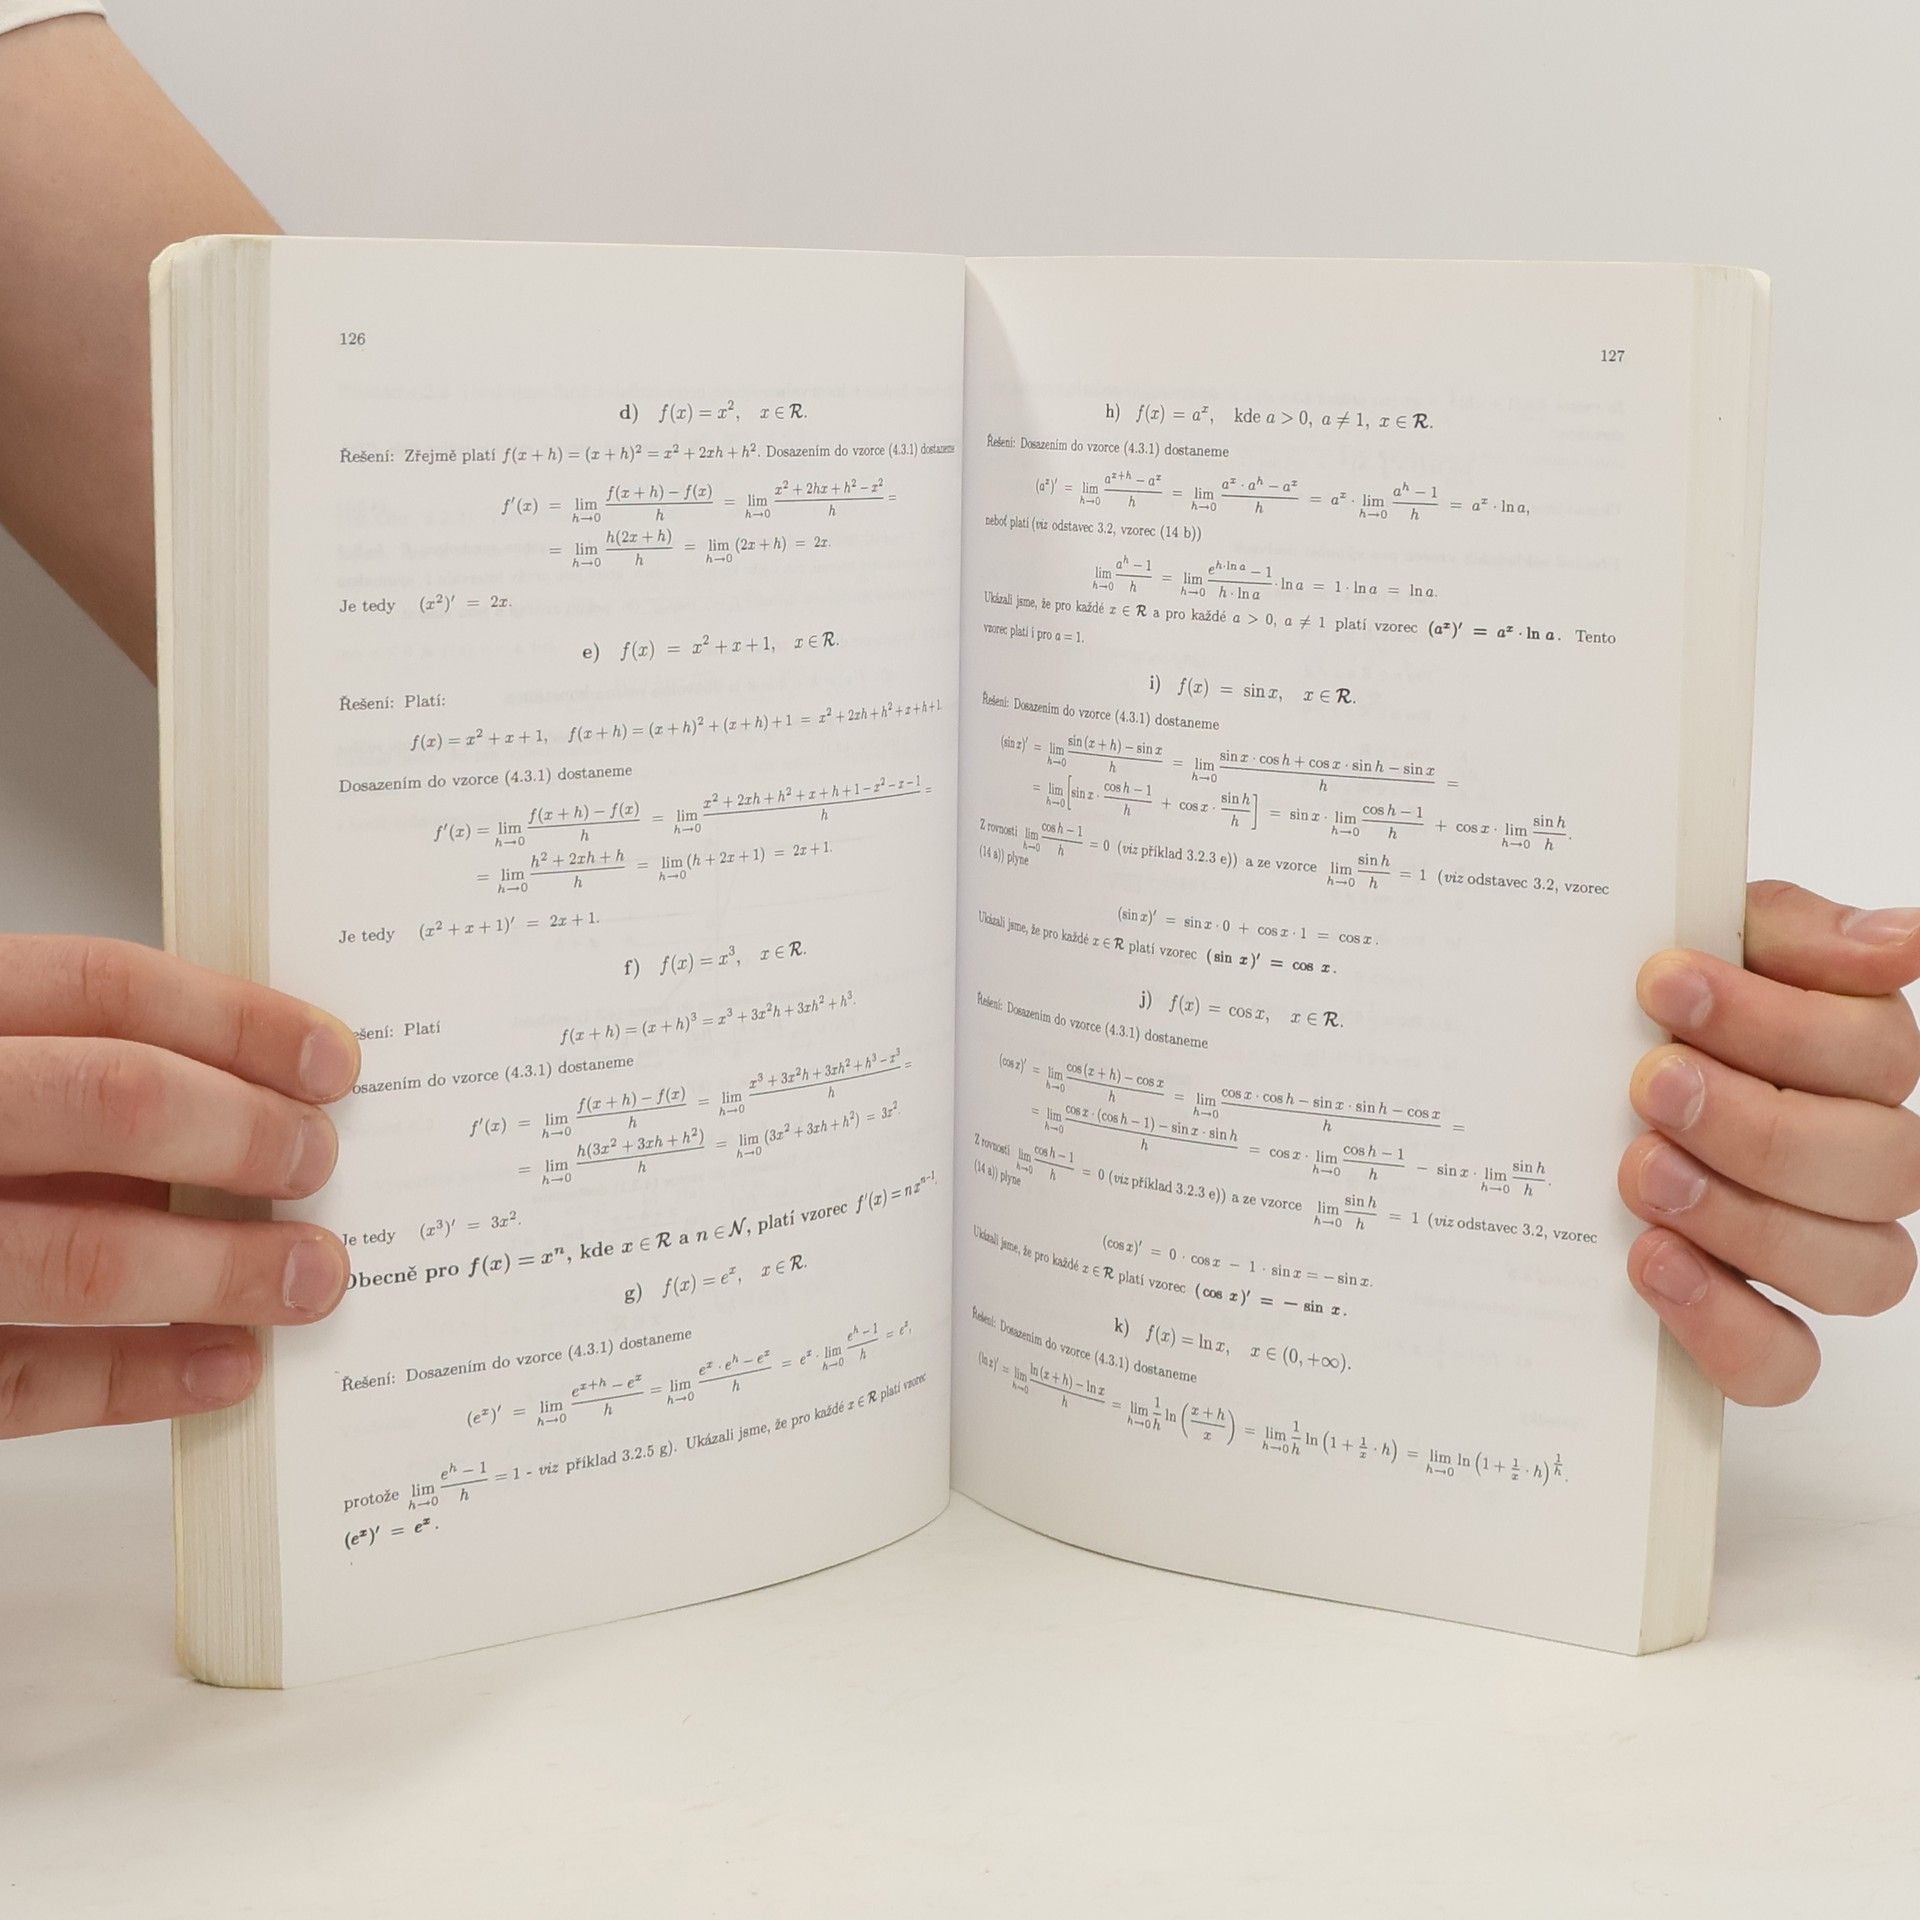 126
d) f(x) = x², x ∈ R.
Řešení: Zřejmě platí f(x + h) = (x + h)² = x² + 2xh + h². Dosazením do vzorce (4.3.1) dostaneme
f′(x) = lim_{h→0} (f(x + h) − f(x))/h = lim_{h→0} (x² + 2hx + h² − x²)/h =
= lim_{h→0} h(2x + h)/h = lim_{h→0} (2x + h) = 2x.
Je tedy (x²)′ = 2x.
e) f(x) = x² + x + 1, x ∈ R.
Řešení: Platí:
f(x) = x² + x + 1, f(x + h) = (x + h)² + (x + h) + 1 = x² + 2xh + h² + x + h + 1.
Dosazením do vzorce (4.3.1) dostaneme
f′(x) = lim_{h→0} (f(x + h) − f(x))/h = lim_{h→0} (x² + 2xh + h² + x + h + 1 − x² − x − 1)/h =
= lim_{h→0} (h² + 2xh + h)/h = lim_{h→0} (h + 2x + 1) = 2x + 1.
Je tedy (x² + x + 1)′ = 2x + 1.
f) f(x) = x³, x ∈ R.
ešení: Platí
f(x + h) = (x + h)³ = x³ + 3x²h + 3xh² + h³.
osazením do vzorce (4.3.1) dostaneme
f′(x) = lim_{h→0} (f(x + h) − f(x))/h = lim_{h→0} (x³ + 3x²h + 3xh² + h³ − x³)/h =
= lim_{h→0} h(3x² + 3xh + h²)/h = lim_{h→0} (3x² + 3xh + h²) = 3x².
Je tedy (x³)′ = 3x².
Obecně pro f(x) = xⁿ, kde x ∈ R a n ∈ N, platí vzorec f′(x) = nxⁿ⁻¹.
g) f(x) = eˣ, x ∈ R.
Řešení: Dosazením do vzorce (4.3.1) dostaneme
(eˣ)′ = lim_{h→0} (eˣ⁺ʰ − eˣ)/h = lim_{h→0} (eˣ · eʰ − eˣ)/h = eˣ · lim_{h→0} (eʰ − 1)/h = eˣ,
protože lim_{h→0} (eʰ − 1)/h = 1 - viz příklad 3.2.5 g). Ukázali jsme, že pro každé x ∈ R platí vzorec
(eˣ)′ = eˣ.
127
h) f(x) = aˣ, kde a > 0, a ≠ 1, x ∈ R.
Řešení: Dosazením do vzorce (4.3.1) dostaneme
(aˣ)′ = lim_{h→0} (aˣ⁺ʰ − aˣ)/h = lim_{h→0} (aˣ · aʰ − aˣ)/h = aˣ · lim_{h→0} (aʰ − 1)/h = aˣ · ln a,
neboť platí (viz odstavec 3.2, vzorec (14 b))
lim_{h→0} (aʰ − 1)/h = lim_{h→0} (e^{h·ln a} − 1)/(h · ln a) · ln a = 1 · ln a = ln a.
Ukázali jsme, že pro každé x ∈ R a pro každé a > 0, a ≠ 1 platí vzorec (aˣ)′ = aˣ · ln a. Tento
vzorec platí i pro a = 1.
i) f(x) = sin x, x ∈ R.
Řešení: Dosazením do vzorce (4.3.1) dostaneme
(sin x)′ = lim_{h→0} (sin (x + h) − sin x)/h = lim_{h→0} (sin x · cos h + cos x · sin h − sin x)/h =
= lim_{h→0} [sin x · (cos h − 1)/h + cos x · (sin h)/h] = sin x · lim_{h→0} (cos h − 1)/h + cos x · lim_{h→0} (sin h)/h.
Z rovnosti lim_{h→0} (cos h − 1)/h = 0 (viz příklad 3.2.3 e)) a ze vzorce lim_{h→0} (sin h)/h = 1 (viz odstavec 3.2, vzorec
(14 a)) plyne
(sin x)′ = sin x · 0 + cos x · 1 = cos x.
Ukázali jsme, že pro každé x ∈ R platí vzorec (sin x)′ = cos x.
j) f(x) = cos x, x ∈ R.
Řešení: Dosazením do vzorce (4.3.1) dostaneme
(cos x)′ = lim_{h→0} (cos (x + h) − cos x)/h = lim_{h→0} (cos x · cos h − sin x · sin h − cos x)/h =
= lim_{h→0} (cos x · (cos h − 1) − sin x · sin h)/h = cos x · lim_{h→0} (cos h − 1)/h − sin x · lim_{h→0} (sin h)/h.
Z rovnosti lim_{h→0} (cos h − 1)/h = 0 (viz příklad 3.2.3 e)) a ze vzorce lim_{h→0} (sin h)/h = 1 (viz odstavec 3.2, vzorec
(14 a)) plyne
(cos x)′ = 0 · cos x − 1 · sin x = − sin x.
Ukázali jsme, že pro každé x ∈ R platí vzorec (cos x)′ = − sin x.
k) f(x) = ln x, x ∈ (0, +∞).
Řešení: Dosazením do vzorce (4.3.1) dostaneme
(ln x)′ = lim_{h→0} (ln (x + h) − ln x)/h = lim_{h→0} 1/h ln ((x + h)/x) = lim_{h→0} 1/h ln (1 + 1/x · h) = lim_{h→0} ln (1 + 1/x · h)^{1/h}.